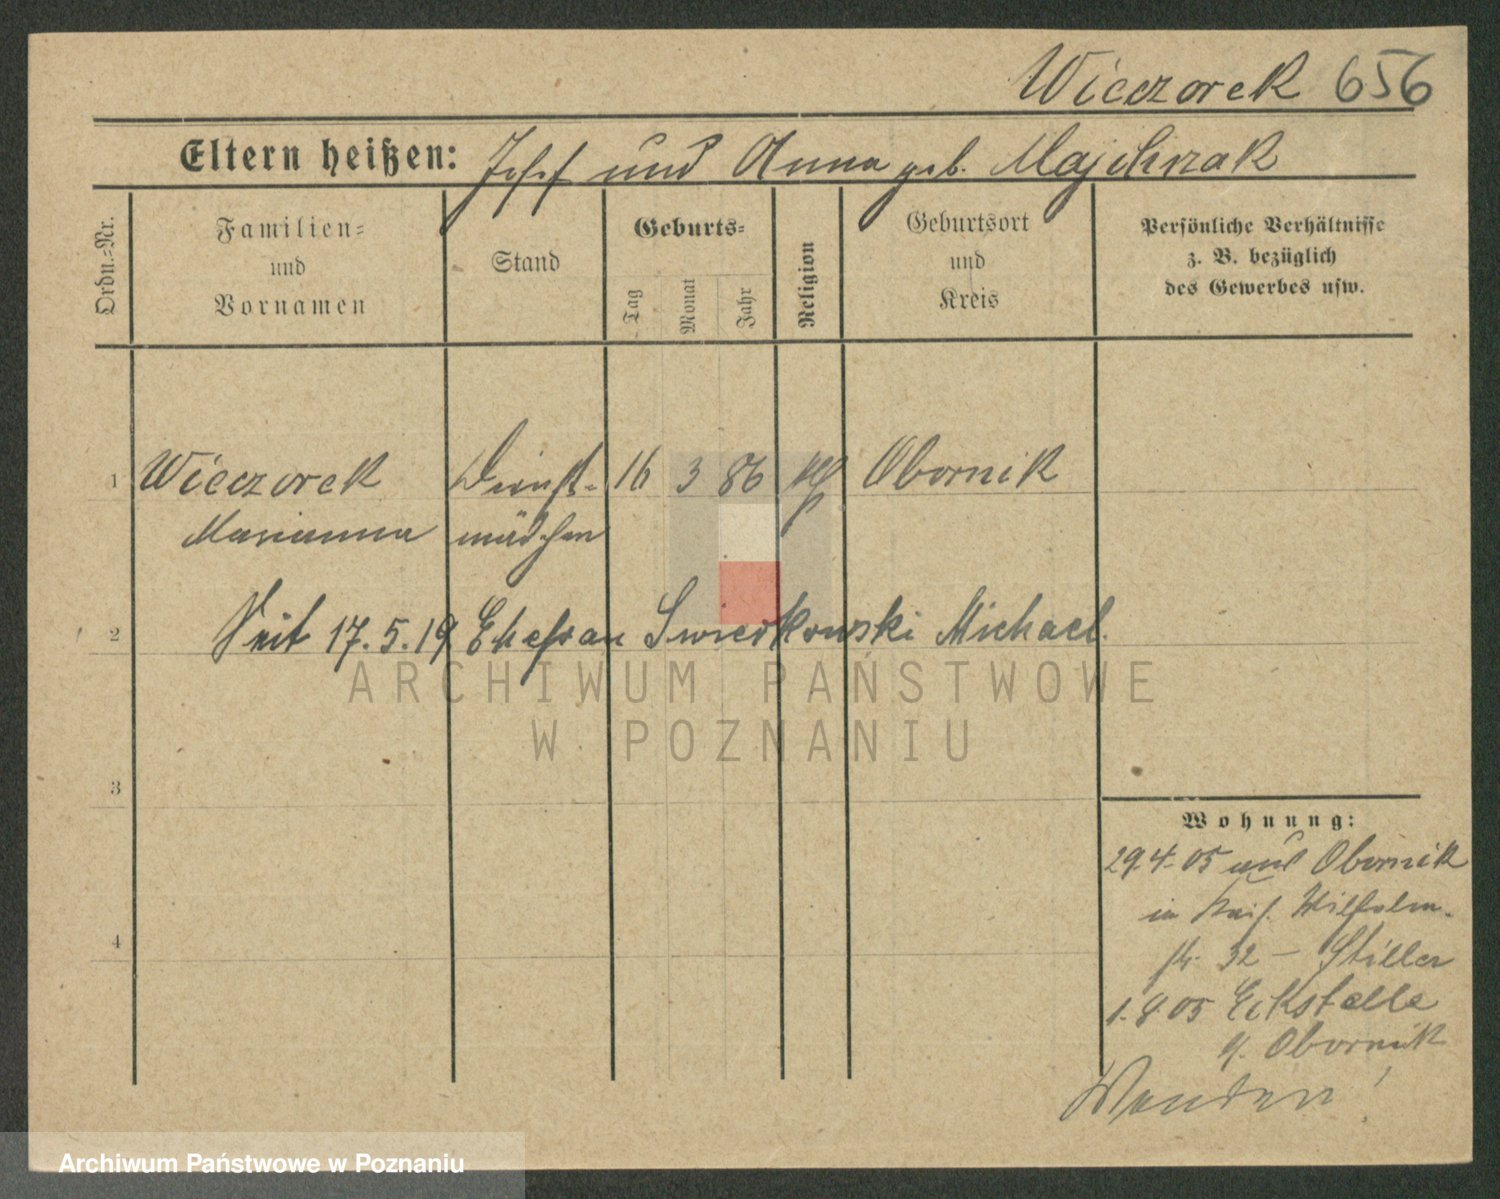 Wieczorek 656
Eltern heißen: Josef und Anna geb. Majchrzak
Ordn.-Nr.
Familien-
und
Vornamen
Stand
Geburts-
Tag
Monat
Jahr
Religion
Geburtsort
und
Kreis
Persönliche Verhältnisse
z. B. bezüglich
des Gewerbes usw.
1 Wieczorek Dienst- 16 3 86 Obornik
Marianna mädchen
2 Seit 17.5.19 Ehefrau Swierkowski Michael.
3
4
Wohnung:
29.4.05 aus Obornik
in Kais. Wilhelm-
str. 32 – Stiller
1.8.05 Eckstelle
Obornik
Wenden!
ARCHIWUM PAŃSTWOWE
W POZNANIU
Archiwum Państwowe w Poznaniu